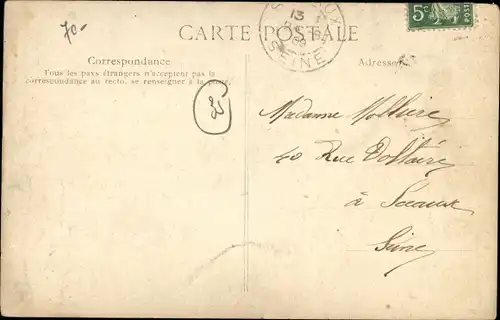 70-
CARTE POSTALE
5c
POSTES
13
SEINE
Correspondance
Tous les pays étrangers n'acceptent pas la
correspondance au recto, se renseigner à la poste.
Adresse
Madame
40 Rue Voltaire
à Sceaux
Seine